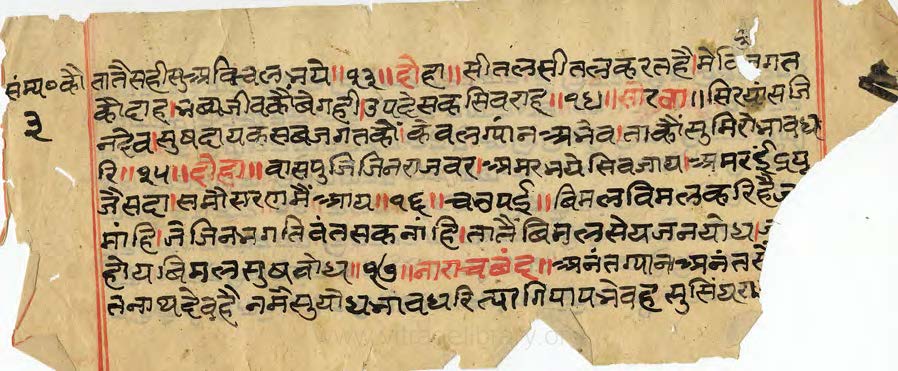 संम्य॰कौ
३
तातैसहीसुअविचलभये॥१३॥दोहा॥सीतलसीतलकरतहै।मेटिजगत
कोदाह।भव्यजीवकौंबेगही।उपदेसकसिवराह॥१४॥सोरठा॥सिरयांसजि
नदेव।सुषदायकसबजगतकौं।केवलग्यांनअभेव।ताकौंसुमिरोंभावध
रि॥१५॥दोहा॥वासपुजिजिनराजवर।अमरभयेसिवजाय।अमरइंद्रपू
जैसदा।समोसरणमैंआय॥१६॥चउपई॥विमलविमलकरिहै
मांहि।जेजिनभगतिवंतसकनांहि।तातैंविमलसेयजनयोध।
होयविमलसुषबोध॥१७॥नाराचछंद॥अनंतग्यानअनंत
तनाथदेवहै नमैसुयोधभावधरित्यागिपापभेवह सुसिय
www.vitragelibrary.org